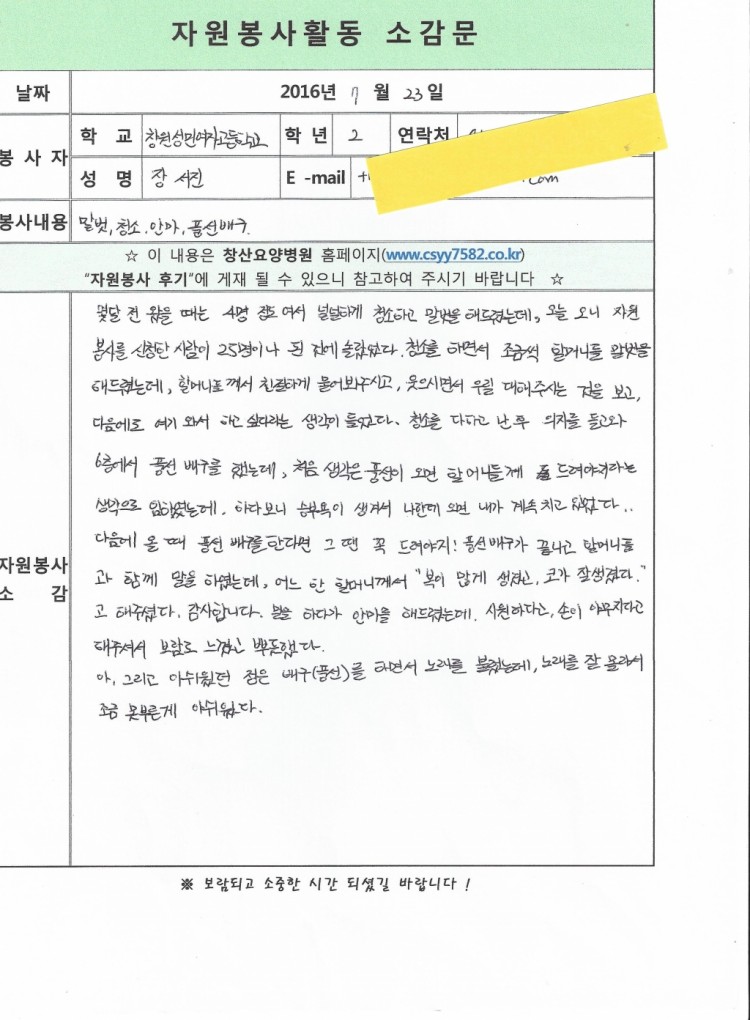 자원봉사활동 소감문
날짜 2016년 7 월 23일
봉사자 학 교 창원성민여자고등학교 학 년 2 연락처
성 명 장 서진 E -mail .com
봉사내용 말벗, 청소. 안마, 풍선배구.
☆ 이 내용은 창산요양병원 홈페이지(www.csyy7582.co.kr)
"자원봉사 후기"에 게재 될 수 있으니 참고하여 주시기 바랍니다 ☆
몇달 전 왔을 때는 4명 정도 여서 널널하게 청소하고 말벗을 해드렸는데, 오늘 오니 자원
봉사를 신청한 사람이 25명이나 된 것에 놀랐었다. 청소를 하면서 조금씩 할머니들 말벗을
해드렸는데, 할머니께서 친절하게 물어봐주시고, 웃으시면서 우릴 대해주시는 것을 보고,
다음에도 여기 와서 하고 싶다라는 생각이 들었다. 청소를 다하고 난 후 의자를 들고와
6층에서 풍선 배구를 했는데, 처음 생각은 풍선이 오면 할머니들께 드려야지라는
생각으로 임하였는데, 하다보니 승부욕이 생겨서 나한테 오면 내가 계속 치고 있었다..
다음에 올 때 풍선 배구를 한다면 그 땐 꼭 드려야지! 풍선배구가 끝나고 할머니들
과 함께 말을 하였는데, 어느 한 할머니께서 "복이 많게 생겼고, 코가 잘생겼다."
고 해주셨다. 감사합니다. 말을 하다가 안마를 해드렸는데. 시원하다고, 손이 야무지다고
해주셔서 보람도 느꼈고 뿌듯했다.
아, 그리고 아쉬웠던 점은 배구(풍선)를 하면서 노래를 불렀는데, 노래를 잘 몰라서
조금 못부른게 아쉬웠다.
자원봉사
소 감
※ 보람되고 소중한 시간 되셨길 바랍니다 !